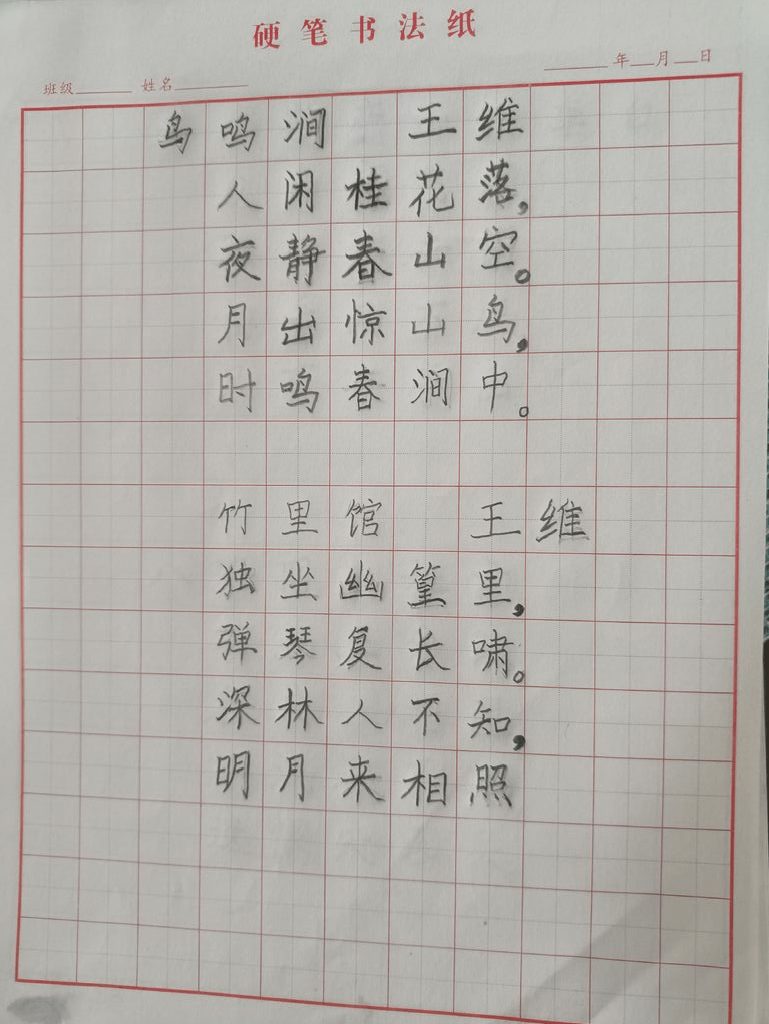 硬笔书法纸
班级______ 姓名________ ______年__月__日
鸟鸣涧 王维
人闲桂花落，
夜静春山空。
月出惊山鸟，
时鸣春涧中。
竹里馆 王维
独坐幽篁里，
弹琴复长啸。
深林人不知，
明月来相照